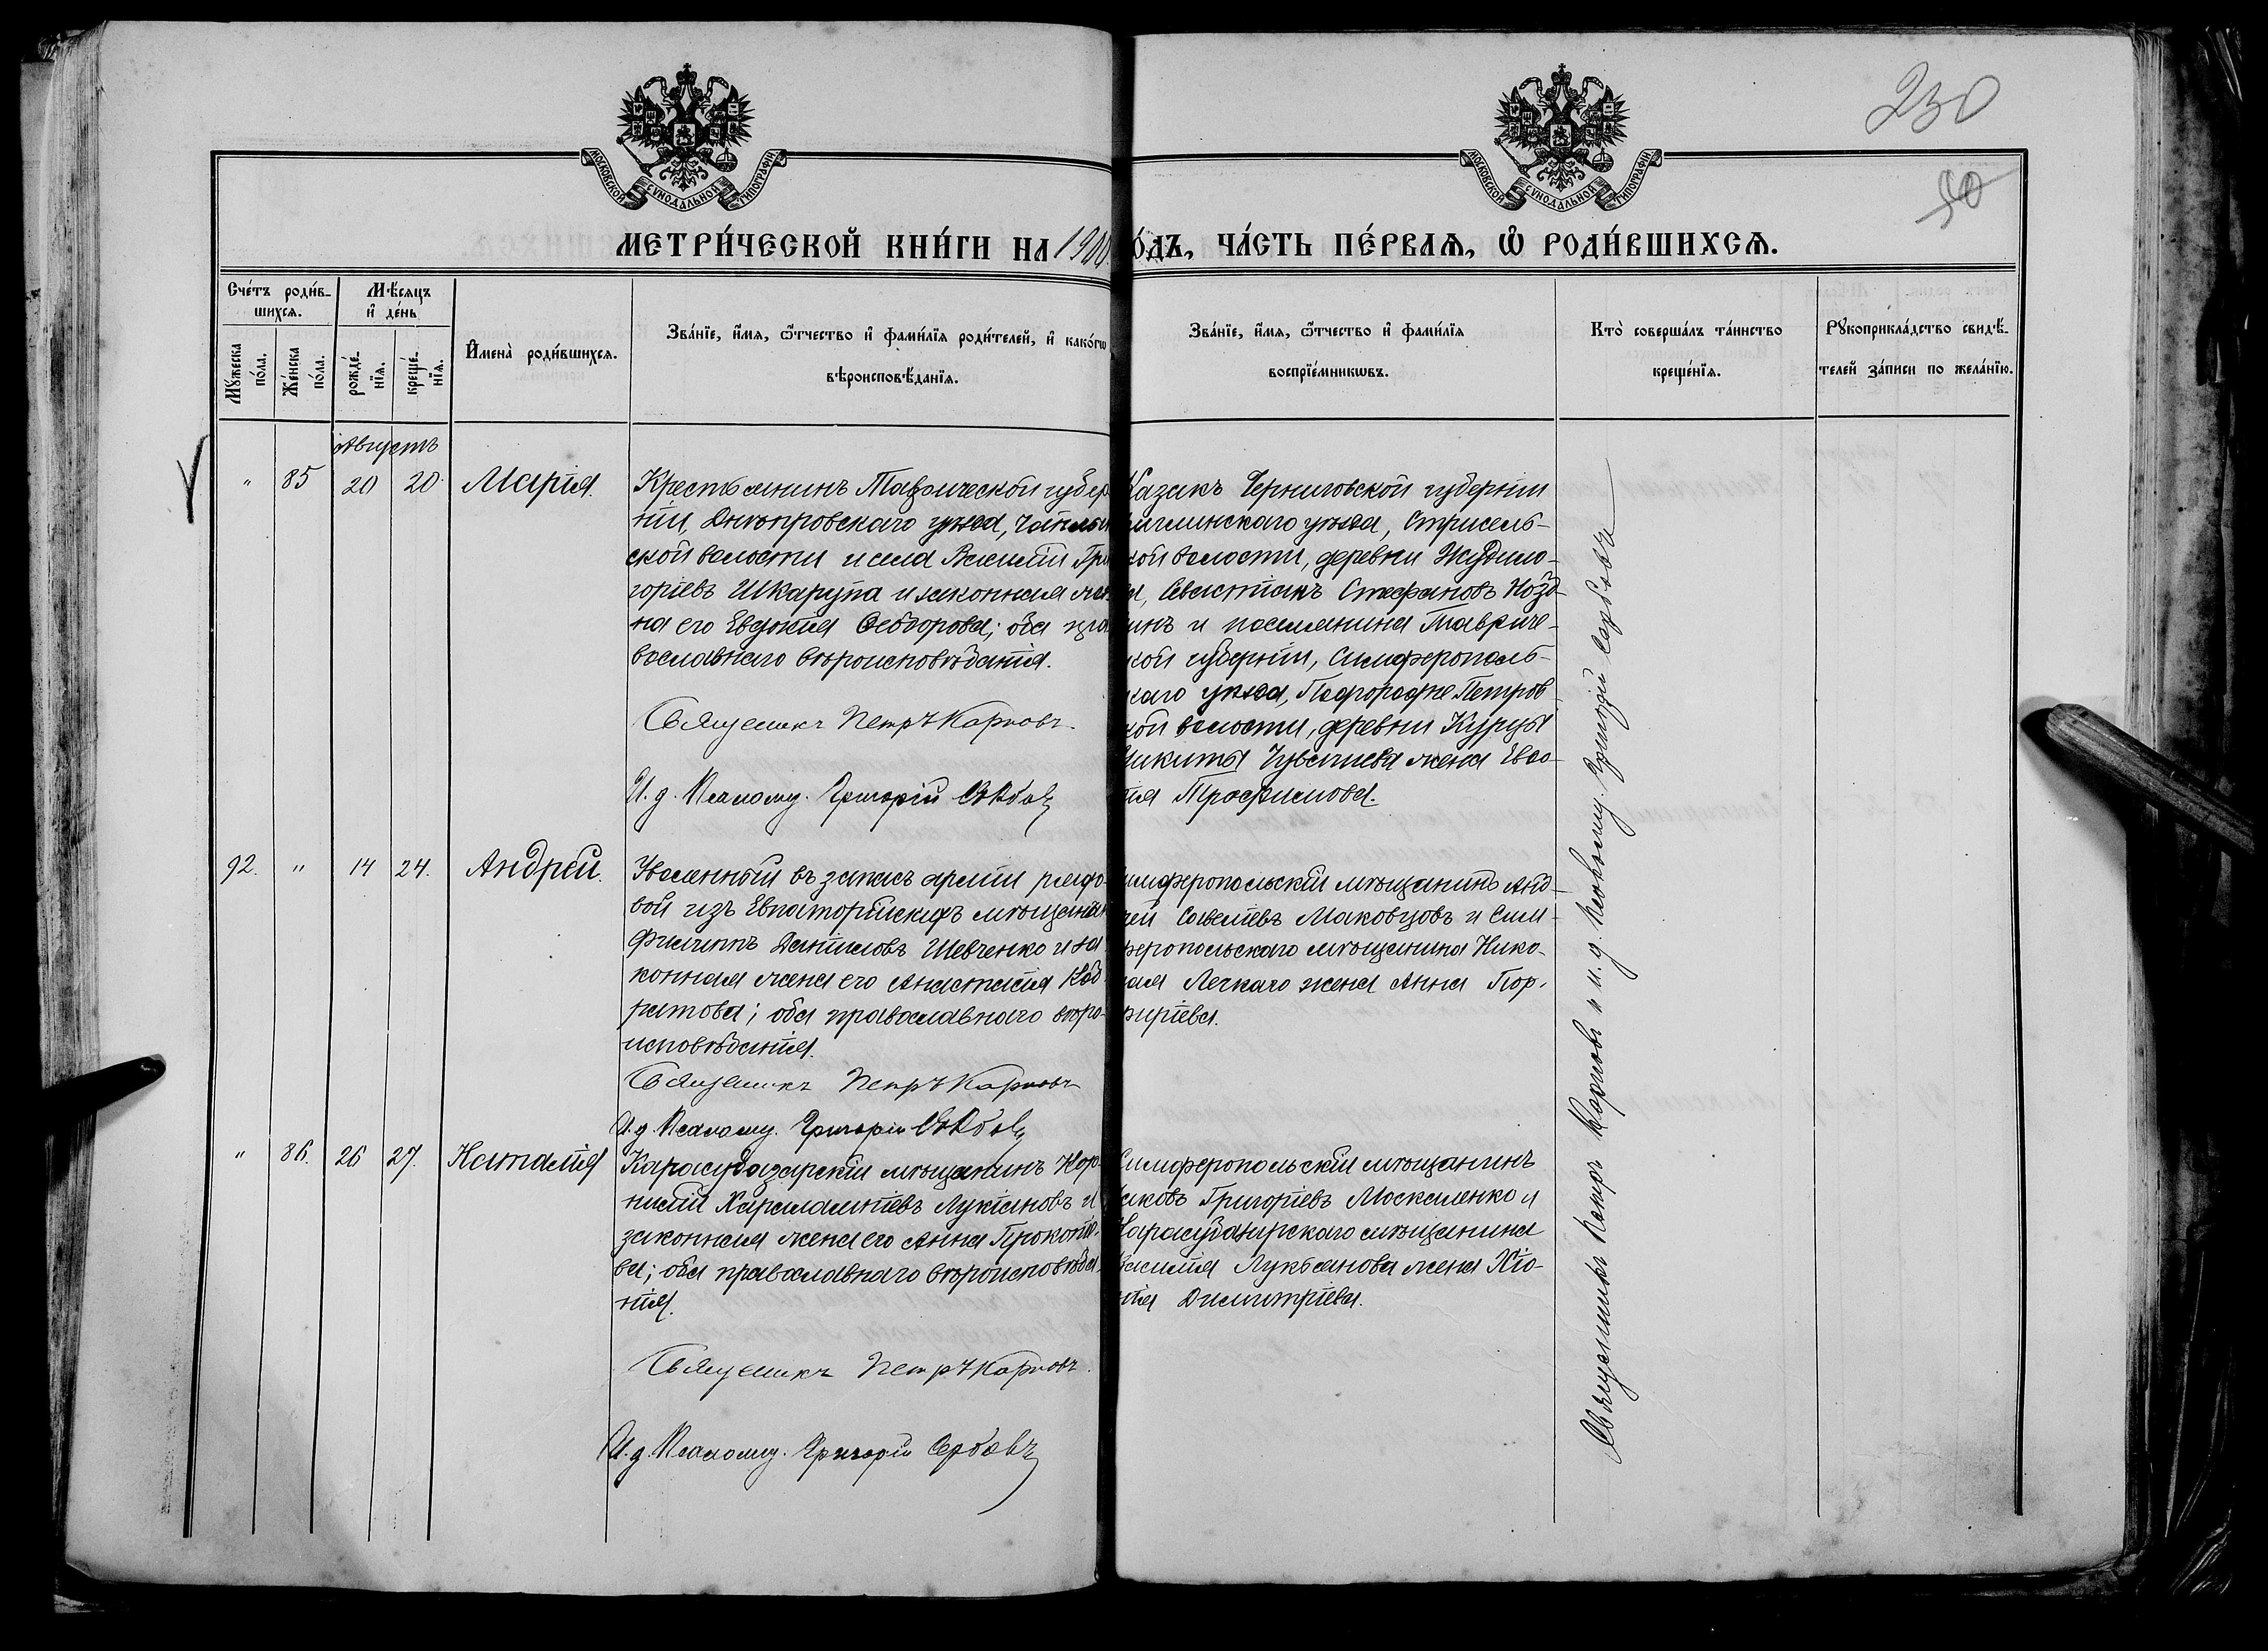 230
40
МОСКОВСКОЙ СУНОДАЛЬНОЙ ТИПОГРАФІИ
МОСКОВСКОЙ СУНОДАЛЬНОЙ ТИПОГРАФІИ
МЕТРИ́ЧЕСКОЙ КНИ́ГИ НА 1900
О́ДЪ, ЧА́СТЬ ПЕ́РВАѦ, Ѡ РОДИ́ВШИХСѦ.
Сче́тъ роди́в-
шихся.
Мѣ́сяцъ
и҆ де́нь
Мꙋ́жеска по́ла.
Же́нска по́ла.
рожде́-нїя.
креще́-нїя.
И҆мена̀ роди́вшихся.
Зва́нїе, и҆́мя, ѻ҆́тчество и҆ фами́лїя роди́телей, и҆ како́гѡ
вѣроисповѣ́данїя.
Зва́нїе, и҆́мя, ѻ҆́тчество и҆ фами́лїя
воспрїе́мникѡвъ.
Кто̀ соверша́лъ та́инство
креще́нїя.
Рꙋкоприкла́дство свидѣ́-
телей за́писи по жела́нїю.
Августъ
" 85 20 20. Марія.
Крестьянинъ Таврической губер-
ніи, Днѣпровскаго уѣзда,
ской волости и села Василій Гри
горіевъ Шкарупа и законная же
на его Евдокія Ѳеодорова; оба пра
вославнаго вѣроисповѣданія.
Священникъ Петръ Карповъ.
И. д. Псаломщ. Григорій
Казакъ Черниговской губерніи
уѣзда,
кой волости, деревни Жудило-
Севастіанъ Стефановъ Нозд-
инъ и поселянина Тавриче-
кой губерніи, Симферополь-
каго уѣзда, Петров
кой волости, деревни Курцы
икиты жена Евдо-
ія Трофимова.
92. " 14 24. Андрей.
Уволенный въ запасъ арміи рядо-
вой изъ Евпаторійскихъ мѣщанъ
Филиппъ Даніиловъ Шевченко и за
конная жена его Анастасія Код
ратова; оба православнаго вѣро-
исповѣданія.
Священникъ Петръ Карповъ
И. д. Псаломщ. Григорій
имферопольскій мѣщанинъ Анд-
рей Савеліевъ Маковцовъ и Сим-
феропольскаго мѣщанина Нико-
лая Легкаго жена Анна Пор-
фиріева.
" 86. 26 27. Наталія
Карасубазарскій мѣщанинъ Кор-
нилій Харалампіевъ Лукіановъ и
законная жена его Анна Прокопіе-
ва; оба православнаго вѣроисповѣда-
нія.
Священникъ Петръ Карповъ.
И. д. Псаломщ. Григорій Сербовъ
Симферопольскій мѣщанинъ
Яковъ Григоріевъ Москаленко и
Карасубазарскаго мѣщанина
Василія Лукьянова жена
нія Димитріева.
Священникъ Петръ Карповъ и и. д. Псаломщ. Григорій Сербовъ